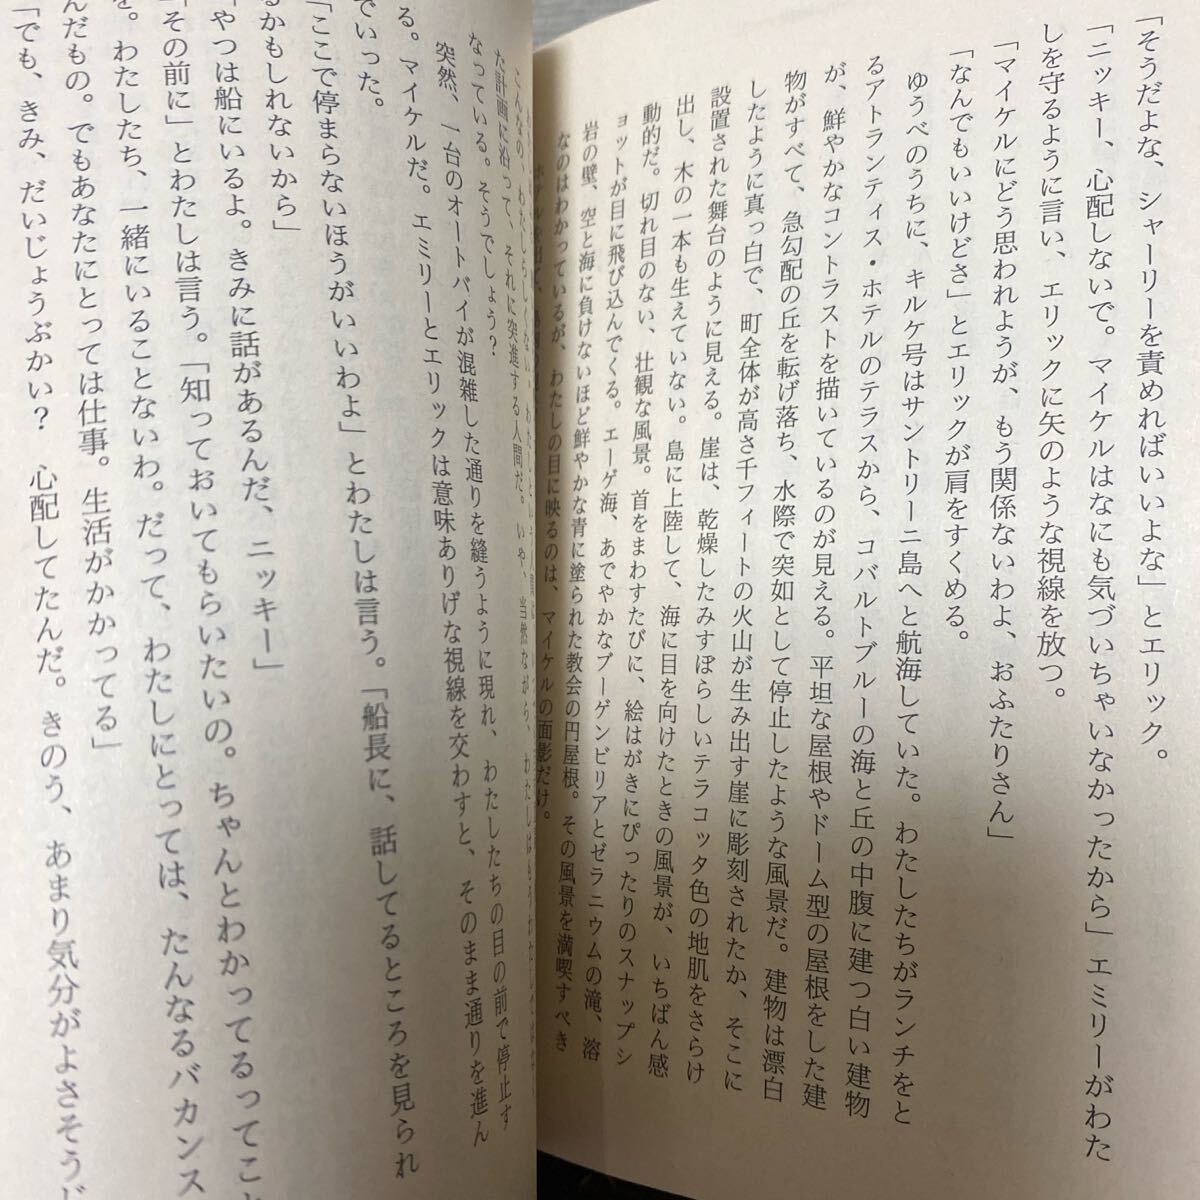 「そうだよな、シャーリーを責めればいいよな」とエリック。
「ニッキー、心配しないで。マイケルはなにも気づいちゃいなかったから」エミリーがわた
しを守るように言い、エリックに矢のような視線を放つ。
「マイケルにどう思われようが、もう関係ないわよ、おふたりさん」
「なんでもいいけどさ」とエリックが肩をすくめる。
ゆうべのうちに、キルケ号はサントリーニ島へと航海していた。わたしたちがランチをと
るアトランティス・ホテルのテラスから、コバルトブルーの海と丘の中腹に建つ白い建物
が、鮮やかなコントラストを描いているのが見える。平坦な屋根やドーム型の屋根をした建
物がすべて、急勾配の丘を転げ落ち、水際で突如として停止したような風景だ。建物は漂白
したように真っ白で、町全体が高さ千フィートの火山が生み出す崖に彫刻されたか、そこに
設置された舞台のように見える。崖は、乾燥したみすぼらしいテラコッタ色の地肌をさらけ
出し、木の一本も生えていない。島に上陸して、海に目を向けたときの風景が、いちばん感
動的だ。切れ目のない、壮観な風景。首をまわすたびに、絵はがきにぴったりのスナップシ
ョットが目に飛び込んでくる。エーゲ海、あでやかなブーゲンビリアとゼラニウムの滝、溶
岩の壁、空と海に負けないほど鮮やかな青に塗られた教会の円屋根。その風景を満喫すべき
なのはわかっているが、わたしの目に映るのは、マイケルの面影だけ。
た計画に沿って、それに突進する人間だ。いや、当然ながら、わたしは
なっている。そうでしょう?
突然、一台のオートバイが混雑した通りを縫うように現れ、わたしたちの目の前で停止す
る。マイケルだ。エミリーとエリックは意味ありげな視線を交わすと、そのまま通りを進ん
でいった。
「ここで停まらないほうがいいわよ」とわたしは言う。「船長に、話してるところを見られ
るかもしれないから」
「やつは船にいるよ。きみに話があるんだ、ニッキー」
「その前に」とわたしは言う。「知っておいてもらいたいの。ちゃんとわかってるってこと
を。わたしたち、一緒にいることないわ。だって、わたしにとっては、たんなるバカンス
んだもの。でもあなたにとっては仕事。生活がかかってる」
「でも、きみ、だいじょうぶかい? 心配してたんだ。きのう、あまり気分がよさそうじ